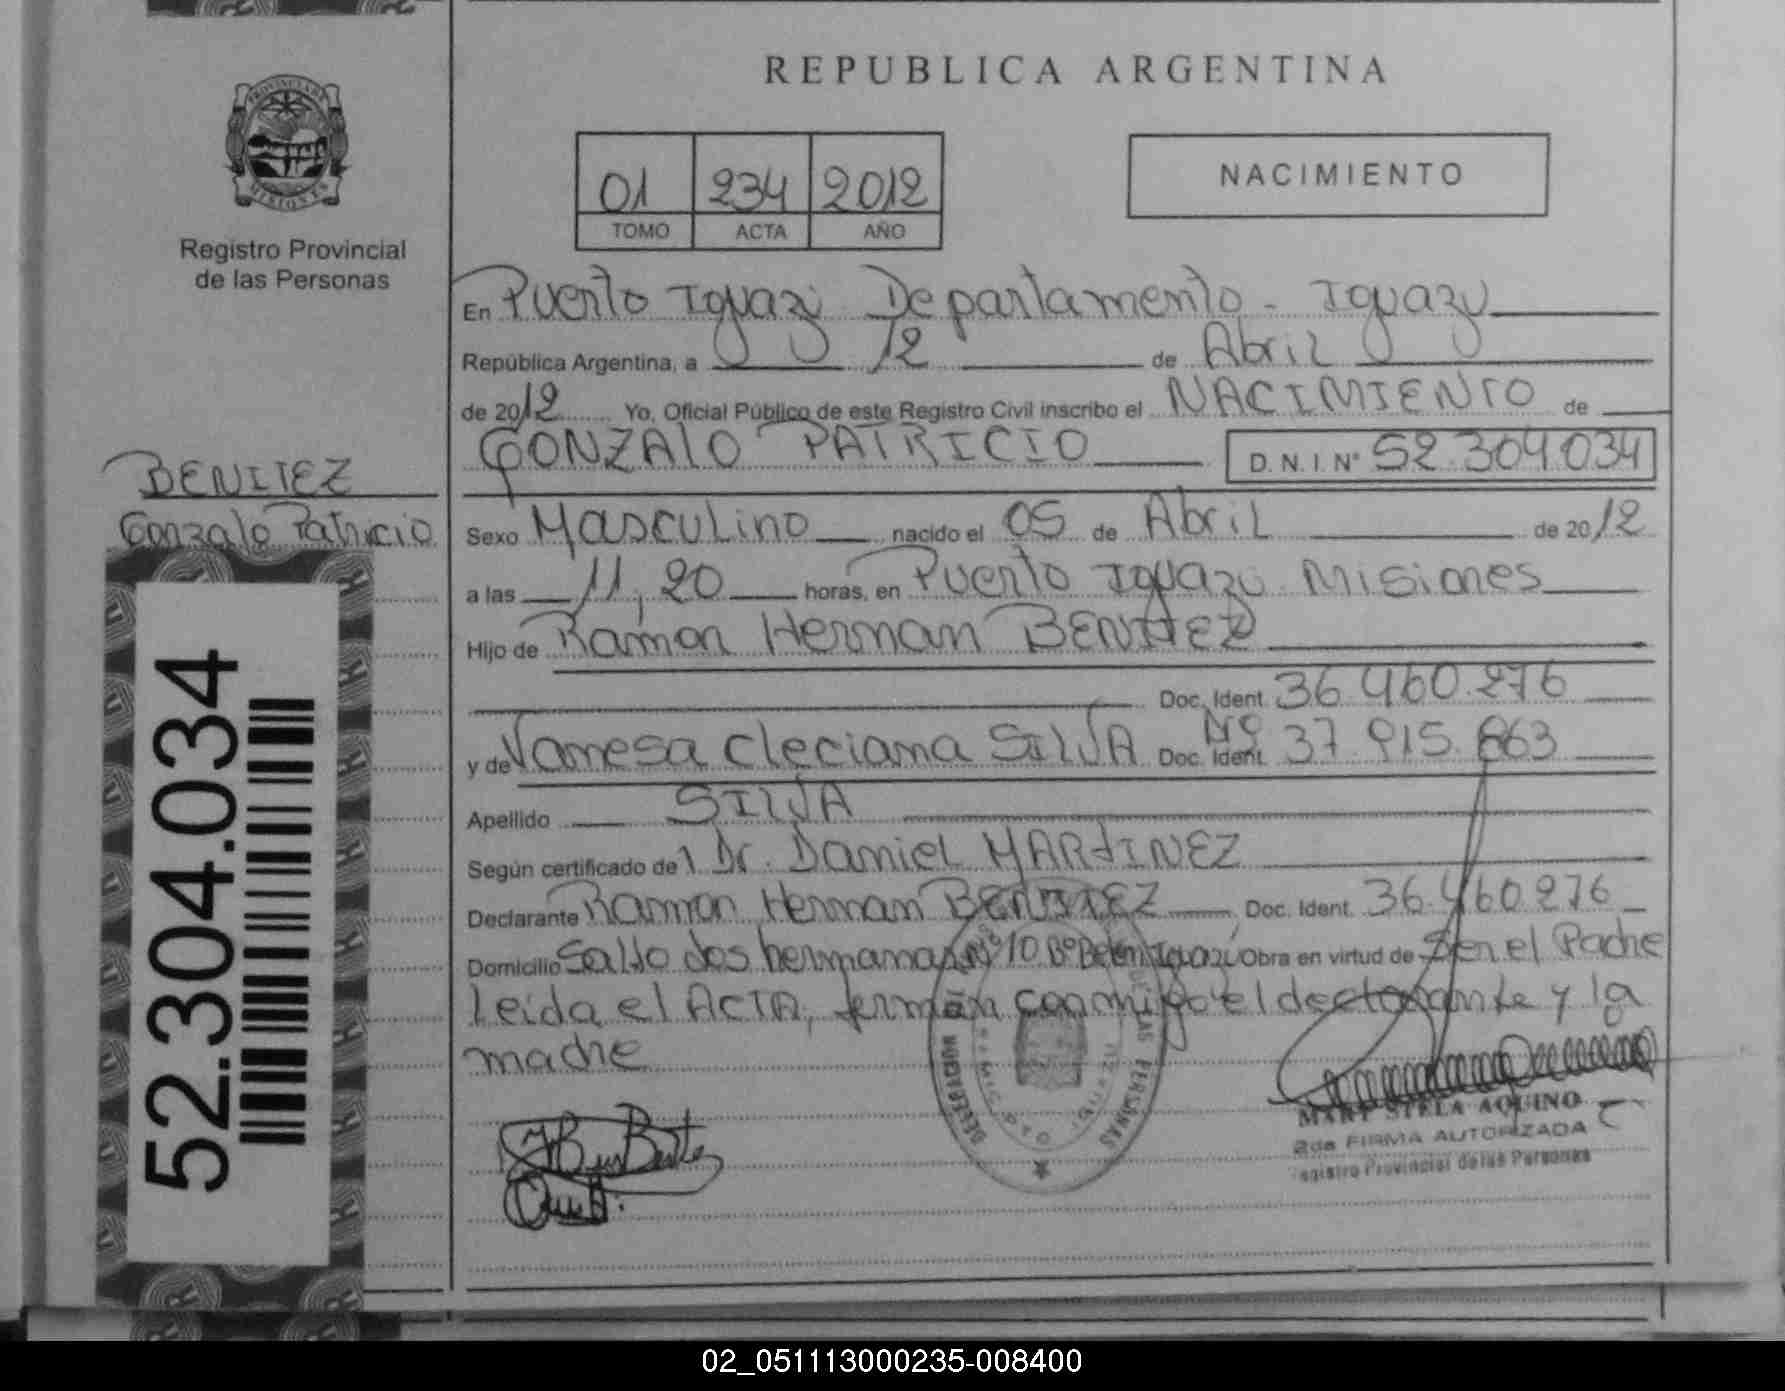 REPUBLICA ARGENTINA
PROVINCIA DE
MISIONES
Registro Provincial
de las Personas
01 234 2012
TOMO ACTA AÑO
NACIMIENTO
En Puerto Iguazú Departamento - Iguazú
República Argentina, a 12 de Abril
de 2012 Yo, Oficial Público de este Registro Civil inscribo el NACIMIENTO de
GONZALO PATRICIO D.N.I Nº 52.304.034
BENITEZ
Gonzalo Patricio
Sexo Masculino nacido el 05 de Abril de 2012
a las 11,20 horas, en Puerto Iguazú Misiones
Hijo de Ramón Hernan BENITEZ
Doc. Ident. 36.460.276
y de Vanesa Cleciana SILVA Doc. Ident. Nº 37.915.863
Apellido SILVA
Según certificado del Dr. Daniel MARTINEZ
Declarante Ramon Hernan BENITEZ Doc. Ident. 36.460.276
Domicilio Salto dos hermanas Nº 10 Bº Belen Iguazú Obra en virtud de Ser el Padre
Leida el ACTA, firman conmigo el declarante y la
madre
52.304.034
DELEGACION
DE LAS PERSONAS
MARY STELA AQUINO
2da FIRMA AUTORIZADA
Registro Provincial de las Personas
02_051113000235-008400